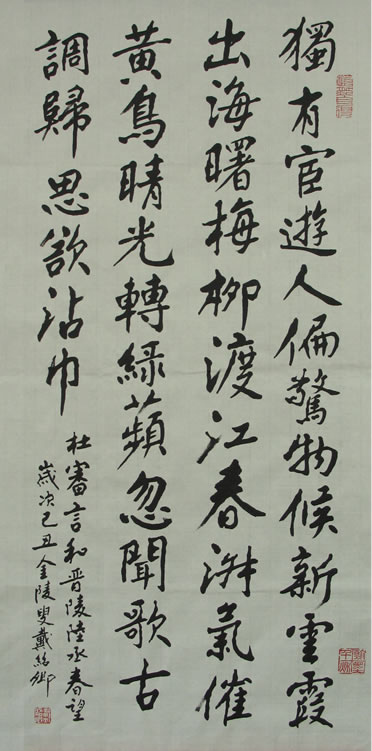 獨有宦遊人偏驚物候新雲霞
出海曙梅柳渡江春淑氣催
黃鳥晴光轉綠蘋忽聞歌古
調歸思欲沾巾
杜審言和晉陵陸丞春望
歲次己丑金陵叟戴卿